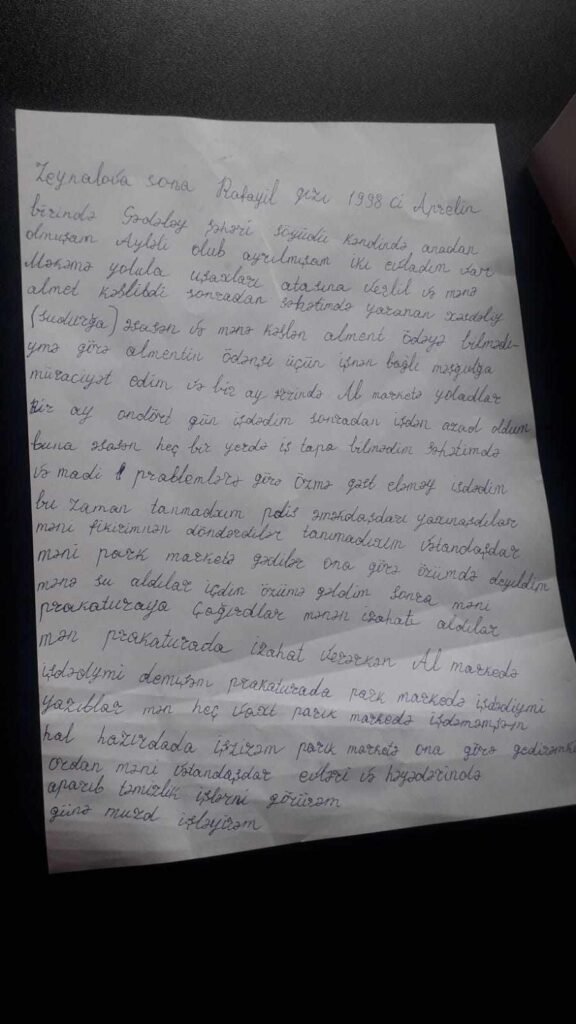 Zeynalova Sona Rafayil qızı 1998 ci Aprelin
birində Gədəbəy şəhəri söyüdlü kəndində anadan
olmuşam Ayləli olub ayrılmışam iki evladım var
Məkəmə yolula uşaxları atasına verlil və mənə
almet kəslibdi sonradan səhətimdə yaranan xəsdəliy
(sudurğa) əsasən və mənə kəslən alment ödəyə bilmədi-
ymə görə almentin ödənşi üçün işnən bağlı məşğulğa
müraciyət edim və bir ay ərində Al marketə yoladlar
Bir ay ondört gün işdədim sonradan işdən azad oldum
buna əsasən heç bir yerdə iş tapa bilmədim səhətimdə
və madi problemlərə görə özmə qəst eləməy isdədim
bu zaman tanmadıxım polis əməkdaşdarı yaxınaşdılar
məni fikirimnən döndərdilər tanımadıxım vətandaşdar
məni park marketə gədilər ona görə özümdə deyildim
mənə su aldılar içdin özümə gəldim sonra məni
prakaturaya çağırdlar mənən izahatı aldılar
mən prakaturada izahat verərkən Al markedə
işdədiymi demişəm prakaturada park markedə işdədiymi
yazıblar mən heç vaxt park markedə işdəməmşəm
hal hazırdada işzirəm park marketə ona görə gedirəmki
ordan məni vətandaşdar evləri və həyədərində
aparıb təmizlik işlərni görürəm
günə muzd işləyirəm